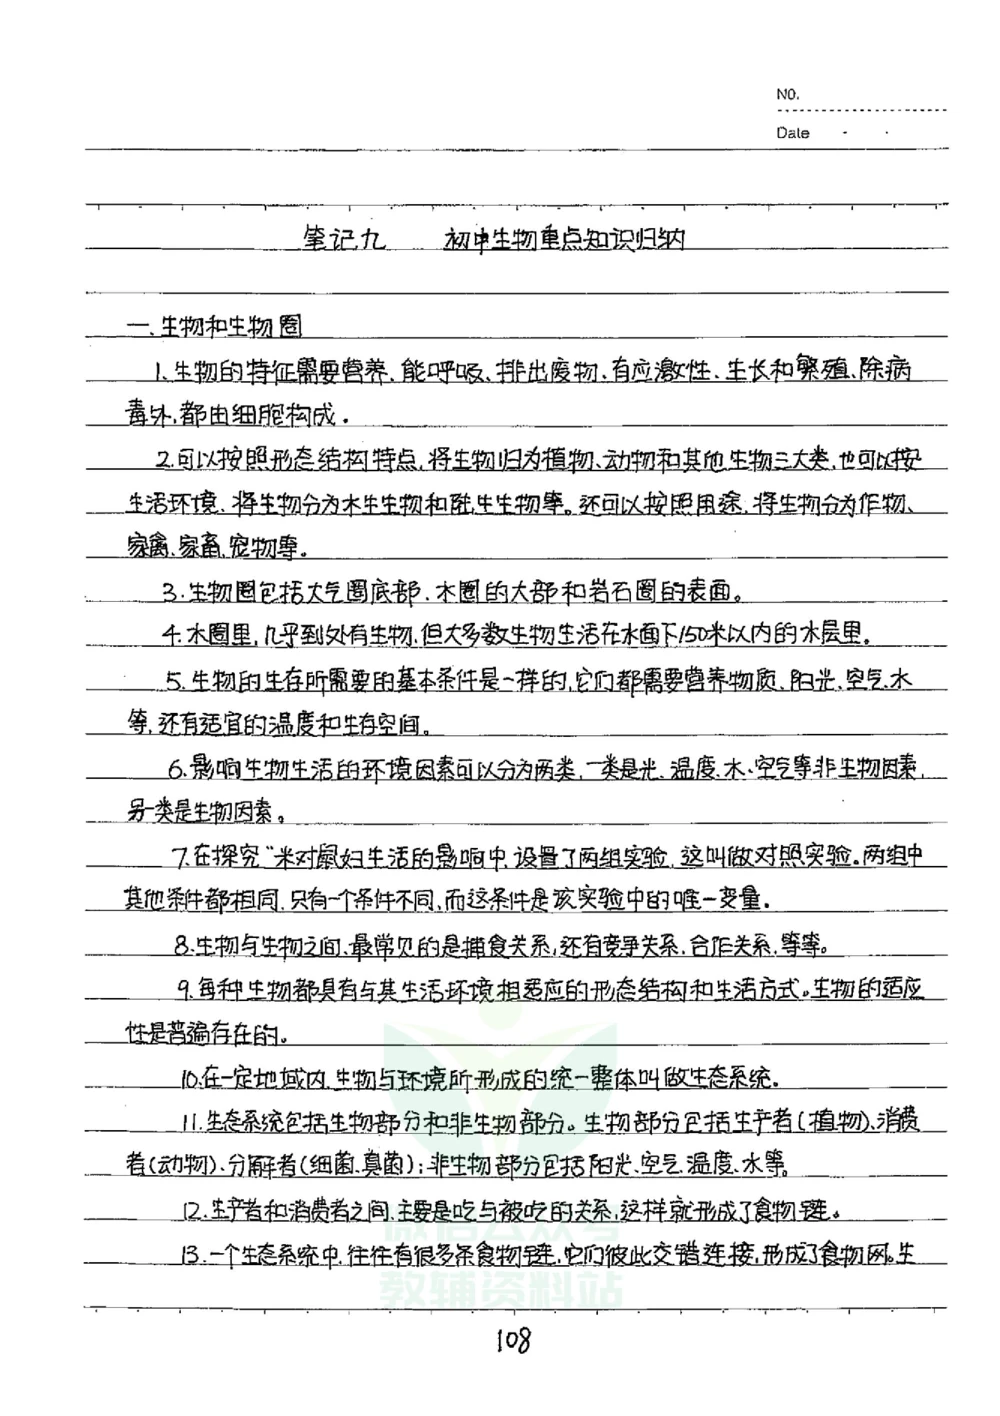 NO.
Date - ·
笔记九 初中生物重点知识归纳
一、生物和生物圈
1.生物的特征需要营养、能呼吸、排出废物、有应激性、生长和繁殖、除病
毒外,都由细胞构成.
2.可以按照形态结构特点,将生物归为植物、动物和其他生物三大类,也可以按
生活环境、将生物分为水生生物和陆生生物等。还可以按照用途,将生物分为作物、
家禽、家畜、宠物等.
3.生物圈包括大气圈底部、水圈的大部和岩石圈的表面。
4.水圈里,几乎到处有生物,但大多数生物生活在水面下150米以内的水层里.
5.生物的生存所需要的基本条件是一样的,它们都需要营养物质、阳光、空气、水
等,还有适宜的温度和生存空间。
6.影响生物生活的环境因素可以分为两类,一类是光、温度、水、空气等非生物因素,
另一类是生物因素。
7.在探究“米对鼠妇生活的影响中,设置了两组实验,这叫做对照实验。两组中
其他条件都相同,只有一个条件不同,而这条件是该实验中的唯一变量.
8.生物与生物之间,最常见的是捕食关系,还有竞争关系、合作关系,等等。
9.每种生物都具有与其生活环境相适应的形态结构和生活方式。生物的适应
性是普遍存在的。
10.在一定地域内,生物与环境所形成的统一整体叫做生态系统.
11.生态系统包括生物部分和非生物部分。生物部分包括生产者(植物)、消费
者(动物)、分解者(细菌、真菌);非生物部分包括阳光、空气、温度、水等。
12.生产者和消费者之间,主要是吃与被吃的关系,这样就形成了食物链。
13.一个生态系统中,往往有很多条食物链,它们彼此交错连接,形成了食物网。生
微信公众号
教辅资料站
108